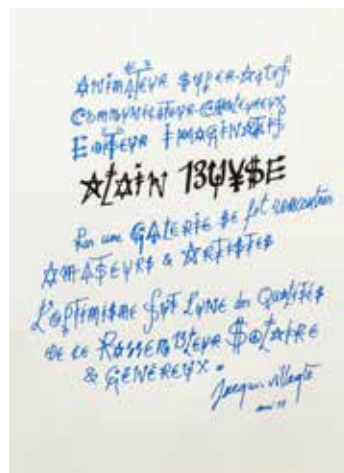 ANIMATEUR SUPER-ACTIF
COMMUNICATEUR CHALEUREUX
EDITEUR IMAGINATIF
ALAIN BUYSE
GALERIE SE fit rencontrer
AMATEURS & ARTISTES
L'OPTIMISME FUT L'UNE des QUALITÉS
DE CE RASSEMBLEUR SOLAIRE
& GÉNÉREUX.
Jacques Villeglé